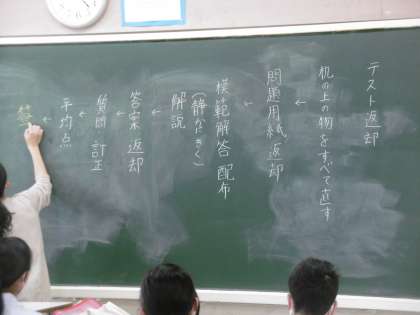 テスト返却
机の上の物をすべて直す
↓
問題用紙返却
↓
模範解答 配布
(静かにきく)
解説
↓
答案 返却
↓
質問 訂正
↓
平均点
↓
答